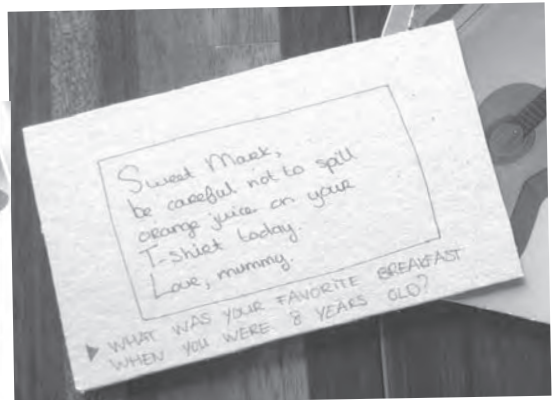 Sweet Mark,
be careful not to spill
orange juice on your
T-shirt today.
Love, mummy.
WHAT WAS YOUR FAVORITE BREAKFAST
WHEN YOU WERE 8 YEARS OLD?